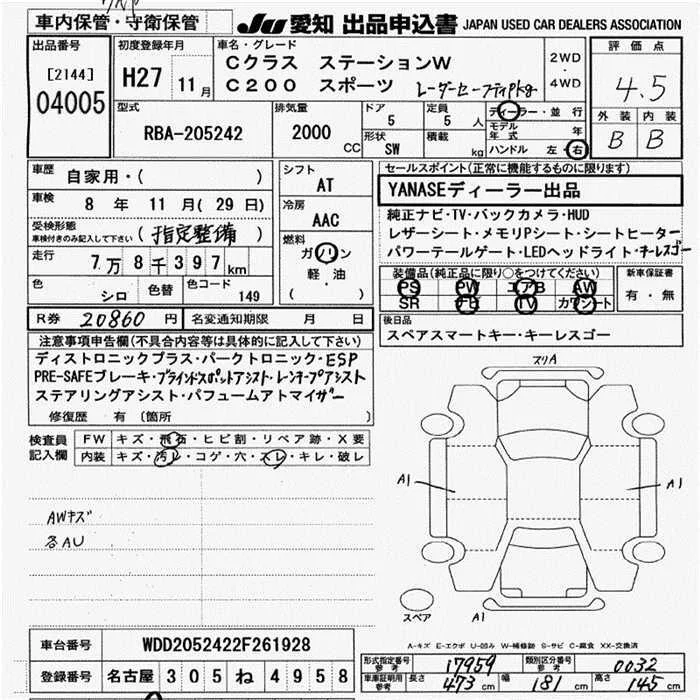 車内保管・守衛保管
JU 愛知 出品申込書 JAPAN USED CAR DEALERS ASSOCIATION
出品番号
[2144]
04005
初度登録年月
H27 11月
車名・グレード
Cクラス ステーションW
C200 スポーツ レーダーセーフティPkg
2WD・4WD
評価点
4.5
外装 内装
B B
型式
RBA-205242
排気量
2000 CC
ドア
5
定員
5人
形状
SW
積載
kg
ディーラー・並行
モデル年式 年
ハンドル 左・右
車歴 自家用・( )
車検 8年 11月(29日)
受検形態
車検付きのみ記入して下さい (指定整備)
走行 7万8千397km
色 シロ 色替 色コード 149
シフト
AT
冷房
AAC
燃料
ガソリン
軽・油
( )
セールスポイント(正常に機能するものに限ります)
YANASEディーラー出品
純正ナビ・TV・バックカメラ・HUD
レザーシート・メモリPシート・シートヒーター
パワーテールゲート・LEDヘッドライト・キーレスゴー
装備品(純正品に限り○をつけてください)
PS PW エアB AW
SR ナビ TV カワシート
新車保証書
有・無
R券 20860円 名変通知期限 月 日
後日品
スペアスマートキー・キーレスゴー
注意事項申告欄(不具合内容等は具体的に記入して下さい)
ディストロニックプラス・パークトロニック・ESP
PRE-SAFEブレーキ・ブラインドスポットアシスト・レーンキープアシスト
ステアリングアシスト・パフュームアトマイザー
修復歴 有(箇所
検査員記入欄
FW キズ・飛石・ヒビ割・リペア跡・X要
内装 キズ・汚レ・コゲ・穴・スレ・キレ・破レ
AWキズ
各AU
スリA
A1
A1
スペア
A1
A-キズ E-エクボ U-凹み W-補修跡 S-サビ C-腐食 XX-交換済
車台番号 WDD2052422F261928
登録番号 名古屋 305 ね 4958
形式指定番号 参考 17959 類別区分番号 参考 0032
車庫証明用 参考 長さ 473cm 幅 181cm 高さ 145cm